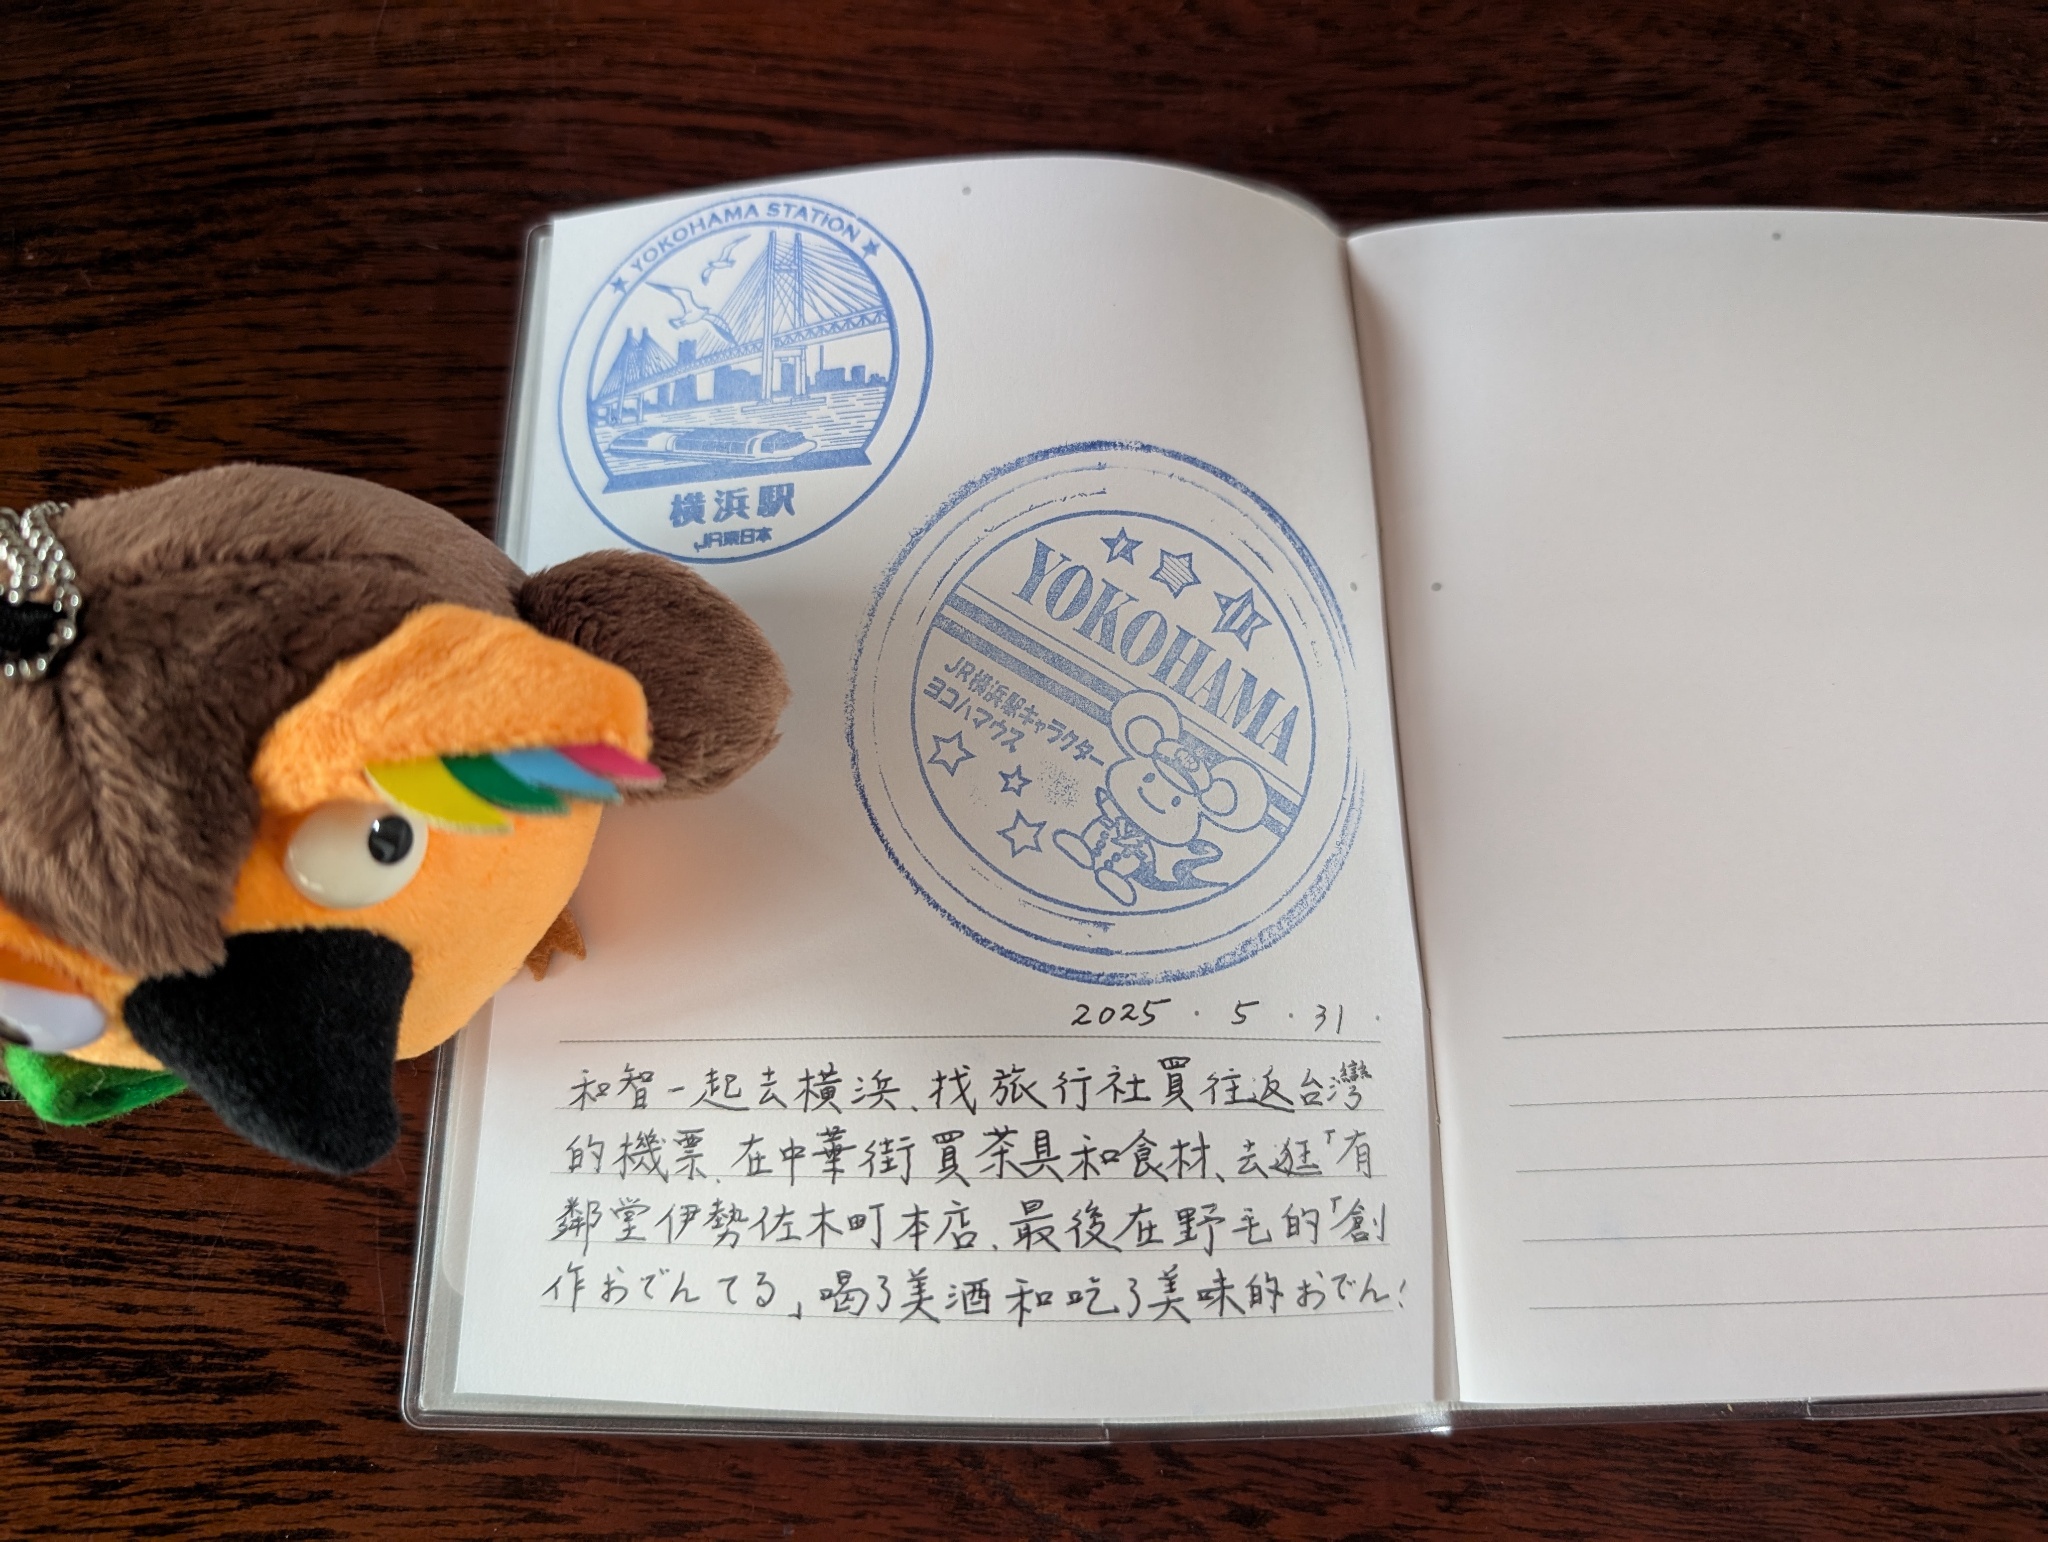 YOKOHAMA STATION
横浜駅
JR東日本
YOKOHAMA
JR横浜駅キャラクター
ヨコハマウス
2025.5.31.
和智一起去橫浜、找旅行社買往返台灣
的機票、在中華街買茶具和食材、去逛「有
鄰堂伊勢佐木町本店、最後在野毛的「創
作おでんてる」喝了美酒和吃了美味的おでん!